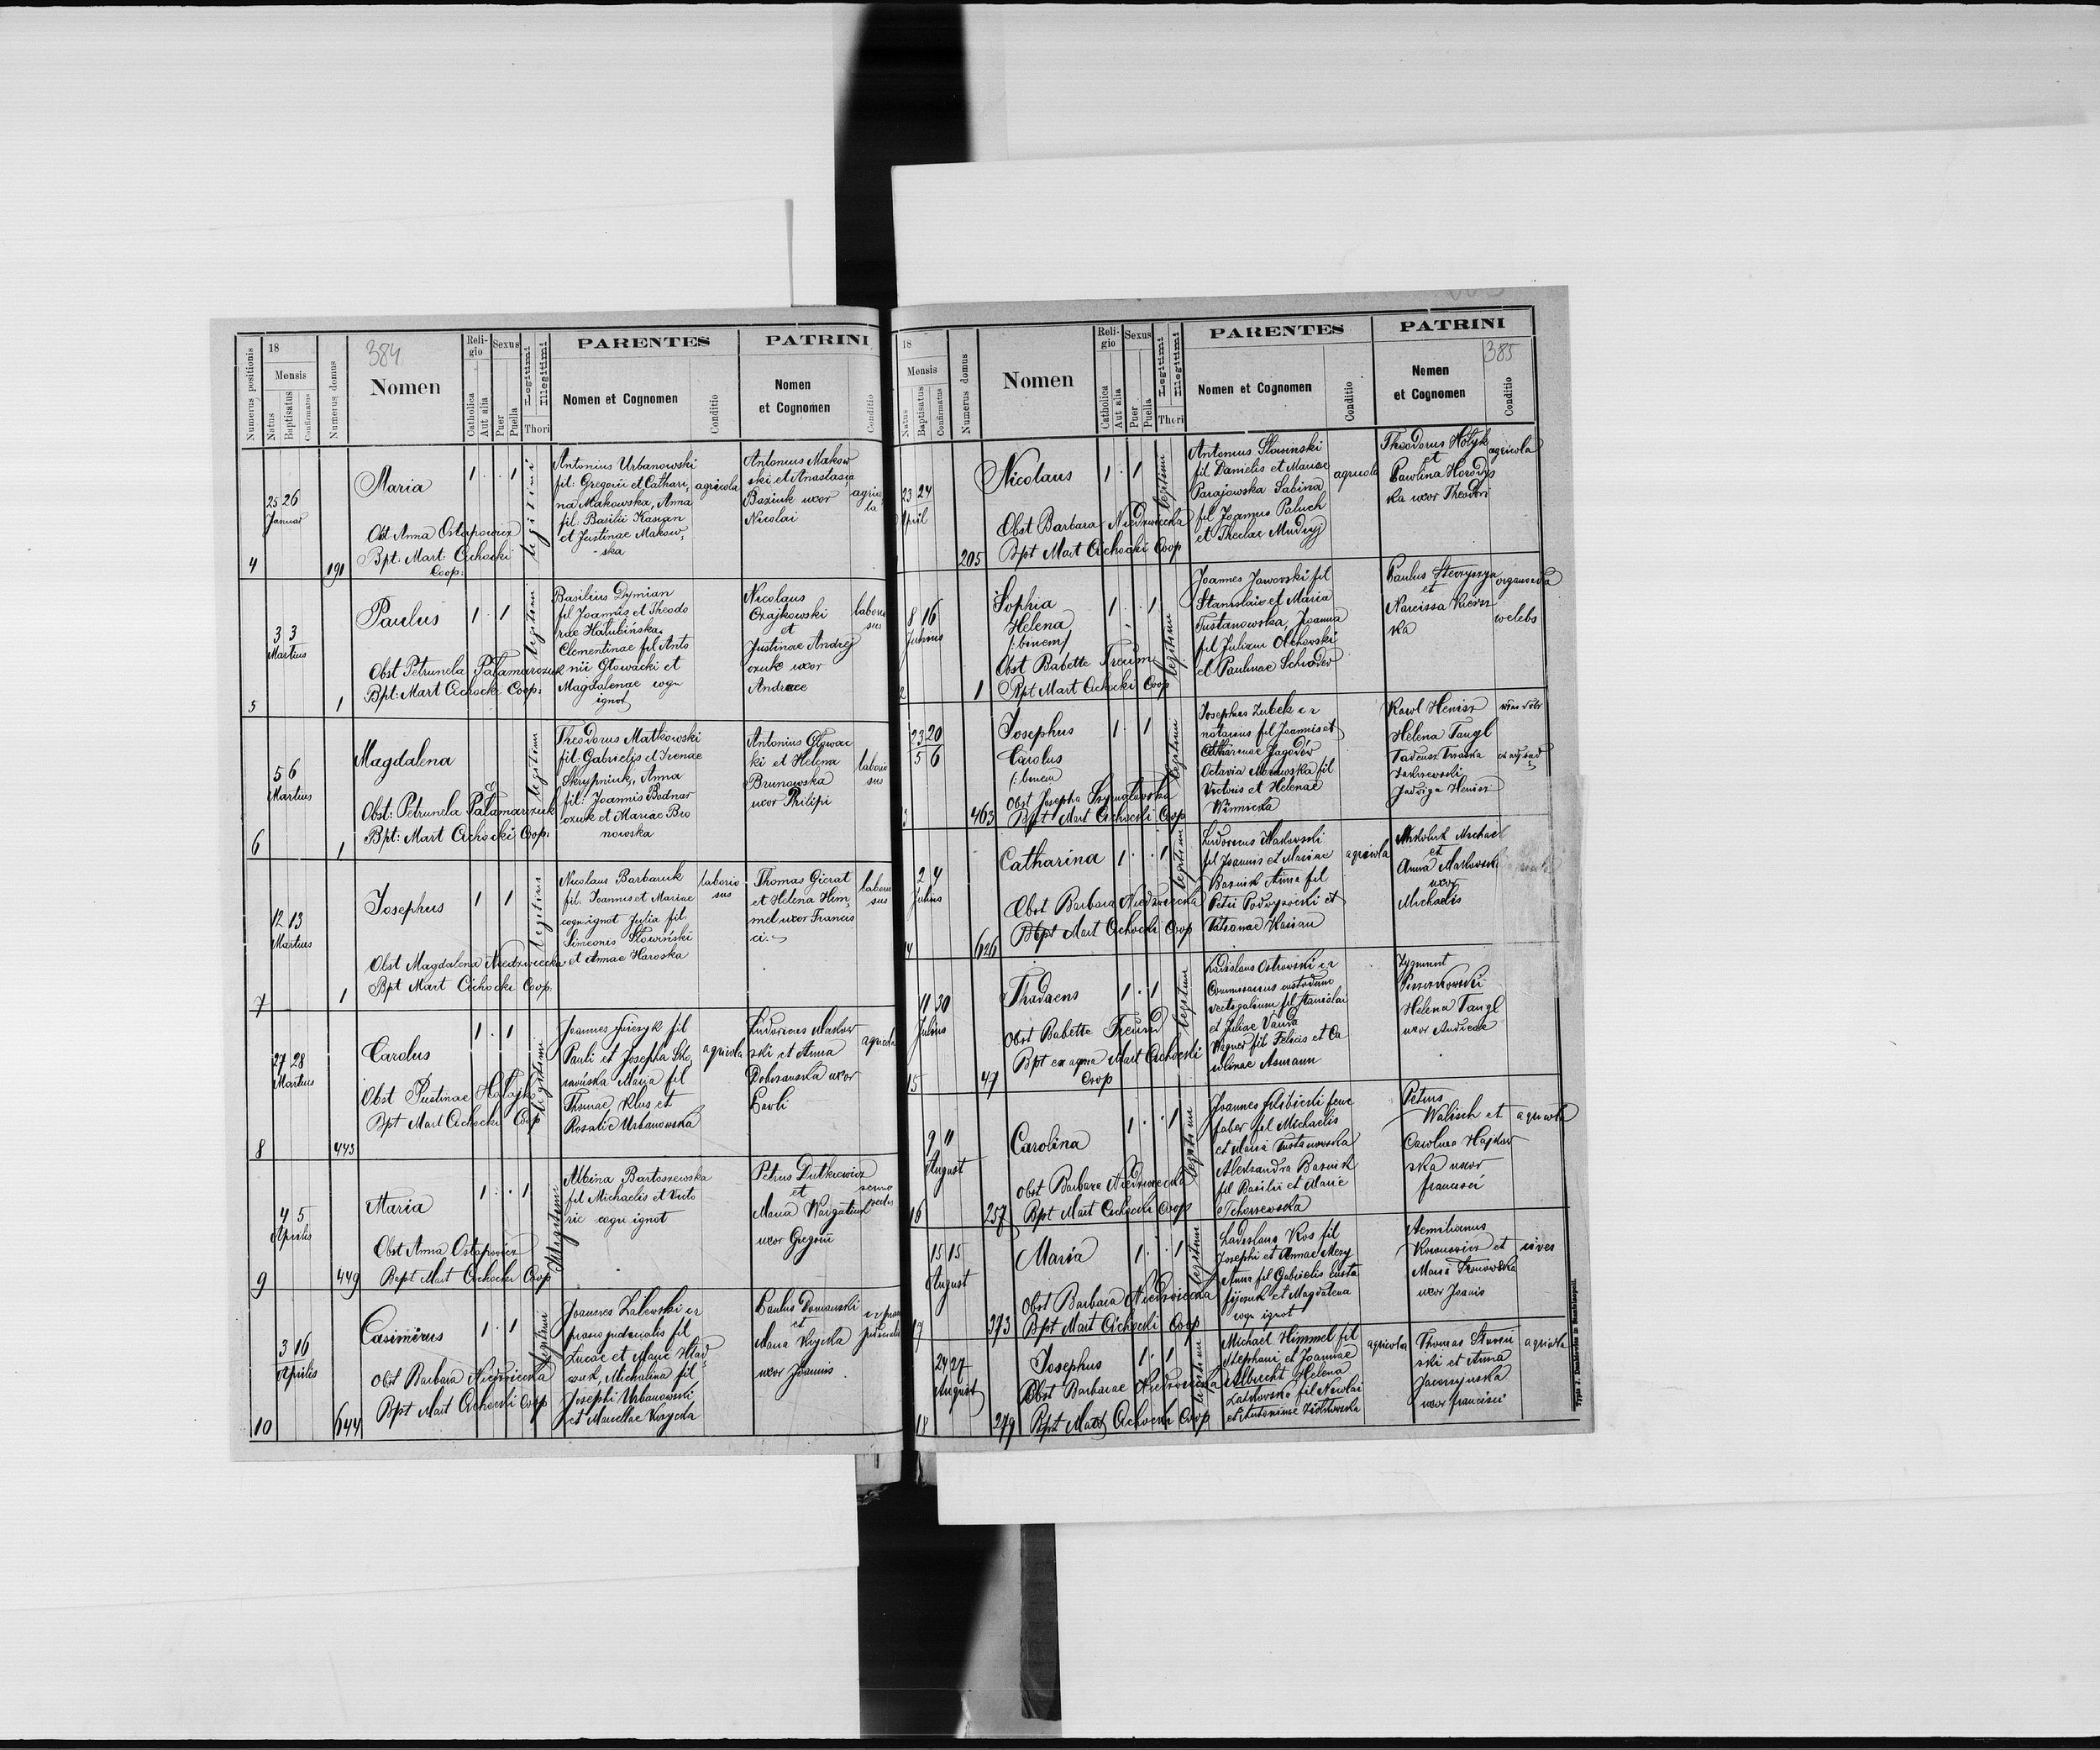 384
Numerus positionis
18
Mensis
Natus
Baptisatus
Confirmatus
Numerus domus
Nomen
Religio
Catholica
Aut alia
Sexus
Puer
Puella
Legitimi
Illegitimi
Thori
PARENTES
Nomen et Cognomen
Conditio
PATRINI
Nomen
et Cognomen
Conditio
4
25 26
Januar
191
Maria
1 1
Obst Anna Ostapowicz
Bpt: Mart. Cichocki
Coop:
legitimi
Antonius Urbanowski
fil: Gregorii et Cathari
na Makowska, Anna
fil: Basilii Kasian
et Justinae Makow
ska
agricola
Antonius Makow
ski et Anastasia
Baziuk uxor
Nicolai
agrico
la
5
3 3
Martius
1
Paulus
1 1
Obst Petrunela Palamarczuk
Bpt: Mart Cichocki Coop:
legitimi
Basilius Dymian
fil Joannis et Theodo
rae Hałubińska
Clementinae fil Anto
nii Głowacki et
Magdalenae cogn
ignot
Nicolaus
Czajkowski
et
Justinae Andrej
czuk uxor
Andreae
laborio
sus
6
5 6
Martius
1
Magdalena
Obst: Petrunela Palamarczuk
Bpt: Mart Cichocki Coop:
legitimi
Theodorus Matkowski
fil: Gabrielis et Irenae
Skrypniuk, Anna
fil: Joannis Bodnar
czuk et Mariae Bro
nowska
Antonius Głowac
ki et Helena
Brunowska
uxor Philipi
laborio
sus
7
12 13
Martius
1
Josephus
1 1
Obst Magdalena Niedzwiecka
Bpt Mart Cichocki Coop.
legitimi
Nicolaus Barbaruk
fil. Joannis et Mariae
cogn ignot Julia fil
Simeonis Słowiński
et Annae Haroska
laborio
sus
Thomas Gierat
et Helena Him
mel uxor Francis
ci.
laborio
sus
8
27 28
Martius
443
Carolus
1 1
Obst Justinae Hałajko
Bpt Mart Cichocki Coop
legitimi
Pauli et Josepha
Maria fil
Thomae Klus et
Rosalie Urbanowska
agricola
Ludovicus Maslow
ski et Anna
Dobrzanska uxor
Pauli
agricola
9
4 5
Aprilis
449
Maria
1 1
Obst Anna Ostapowicz
Bapt Mart Cichocki Coop
Illegitimi
Albina Bartoszewska
fil Michaelis et Victo
rie cogn ignot
Petrus Dutkiewicz
et
Maria
uxor Gregorii
10
3 16
Aprilis
644
Casimirus
1 1
Obst Barbara Niedzwiecka
Bpt Mart Cichocki Coop
legitimi
Joannes Zalewski
fil
Lucae et Marie
Michalina fil
Josephi Urbanowski
et Marcellae Kurycka
Paulus Domanski
et
Maria Kurycka
uxor Joannis
385
18
Mensis
Natus
Baptisatus
Confirmatus
Numerus domus
Nomen
Religio
Catholica
Aut alia
Sexus
Puer
Puella
Legitimi
Illegitimi
Thori
PARENTES
Nomen et Cognomen
Conditio
PATRINI
Nomen
et Cognomen
Conditio
23 24
April
205
Nicolaus
1 1
Obst Barbara Niedzwiecka
Bpt Mart Cichocki Coop
legitimi
Antonius Słowinski
fil Danielis et Mariae
Parajowska Sabina
fil Joannis Paluch
et Theclae Mudryj
agricola
Theodorus Hołyk
et
Pawlina Horodys
ka uxor Theodori
agricola
2
8 16
Junius
1
Sophia
Helena
(:binom)
1 1
Obst Babette Freund
Bpt Mart Cichocki Coop
legitimi
Joannes Jaworski fil
Stanislaio et Maria
Tustanowska, Joanna
fil Julian Olchowski
et Paulinae Schröder
Paulus
et
Narcissa
ka
3
23 20
5 6
463
Josephus
Carolus
(:binom
1 1
Obst Josepha
Bpt Mart Cichocki Coop
legitimi
Josephus Zubek
notarius fil Joannis et
Catharinae Jagodów
Octavia fil
Victoris et Helenae
Winnicka
Karol Henisz
Helena Tangl
Tadeusz
Jadwiga Henisz
4
2 4
Julius
626
Catharina
1 1
Obst Barbara Niedzwiecka
Bpt Mart Cichocki Coop
legitimi
Ludovicus Maslowski
fil Joannis et Mariae
Baziuk Anna fil
Petri Podwysocki et
Tatianae Kasian
agricola
Michael
et
Anna Maslowska
uxor
Michaelis
15
11 30
Julius
47
Thadaeus
1 1
Obst Babette Freund
Bpt ex aqua Mart Cichocki
Coop
legitimi
Ladislaus Ostrowski
Commissarius custodiae
vectigalium fil Stanislai
et Juliae Vanda
Wagner fil Felicis et Ca
rolinae Asmann
Zygmunt
Helena Tangl
uxor Andreae
16
9 11
August
257
Carolina
1 1
Obst Barbara Niedzwiecka
Bpt Mart Cichocki Coop
legitimi
Joannes
faber fil Michaelis
et Maria Tustanowska
Aleksandra Baziuk
fil Basilii et Marie
Tchorzewska
Petrus
Walisch et
Carolina Hajdar
ska uxor
francisci
agricola
17
15 15
August
373
Maria
1 1
Obst Barbara Niedzwiecka
Bpt Mart Cichocki Coop
legitimi
Ladislaus Kos fil
Josephi et Annae
Anna fil Gabrielis Eusta
fijczuk et Magdalena
cogn ignot
Aemilianus
et
Maria
uxor Joanis
cives
18
24 27
August
279
Josephus
1 1
Obst Barbarae Niedzwiecka
Bpt Mart Cichocki Coop
legitimi
Michael Himmel fil
Stephani et Joannae
Albrecht Helena
fil Nicolai
et Antoninae Ziółkowska
agricola
Thomas
ski et Anna
uxor francisci
agricola